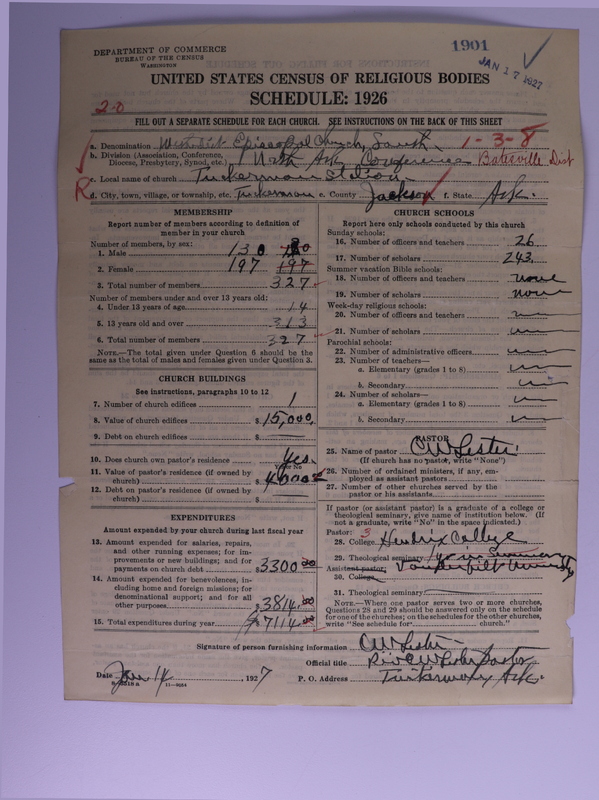 DEPARTMENT OF COMMERCE
BUREAU OF THE CENSUS
WASHINGTON
1901
JAN 17 1927
UNITED STATES CENSUS OF RELIGIOUS BODIES
SCHEDULE: 1926
20
FILL OUT A SEPARATE SCHEDULE FOR EACH CHURCH. SEE INSTRUCTIONS ON THE BACK OF THIS SHEET
a. Denomination Methodist Episcopal Church, South 1-3-8
b. Division (Association, Conference, Diocese, Presbytery, Synod, etc.) North Ark Conference Batesville Dist
c. Local name of church Tuckerman Station
R
d. City, town, village, or township, etc. Tuckerman e. County Jackson f. State Ark.
MEMBERSHIP
Report number of members according to definition of member in your church
Number of members, by sex:
1. Male 130
2. Female 197 197
3. Total number of members 327
Number of members under and over 13 years old:
4. Under 13 years of age 14
5. 13 years old and over 313
6. Total number of members 327
NOTE.—The total given under Question 6 should be the same as the total of males and females given under Question 3.
CHURCH BUILDINGS
See instructions, paragraphs 10 to 12
7. Number of church edifices 1
8. Value of church edifices $ 15,000.
9. Debt on church edifices $
10. Does church own pastor's residence Yes.
Yes or No
11. Value of pastor's residence (if owned by church) $ 4000
12. Debt on pastor's residence (if owned by church) $
EXPENDITURES
Amount expended by your church during last fiscal year
13. Amount expended for salaries, repairs, and other running expenses; for improvements or new buildings; and for payments on church debt $ 3300.00
14. Amount expended for benevolences, including home and foreign missions; for denominational support; and for all other purposes $ 3814.00
15. Total expenditures during year $ 7114.00
CHURCH SCHOOLS
Report here only schools conducted by this church
Sunday schools:
16. Number of officers and teachers 26
17. Number of scholars 243
Summer vacation Bible schools:
18. Number of officers and teachers none
19. Number of scholars none
Week-day religious schools:
20. Number of officers and teachers
21. Number of scholars
Parochial schools:
22. Number of administrative officers
23. Number of teachers—
a. Elementary (grades 1 to 8)
b. Secondary
24. Number of scholars—
a. Elementary (grades 1 to 8)
b. Secondary
PASTOR
25. Name of pastor CW Lester
(If church has no pastor, write "None")
26. Number of ordained ministers, if any, employed as assistant pastors
27. Number of other churches served by the pastor or his assistants
If pastor (or assistant pastor) is a graduate of a college or theological seminary, give name of institution below. (If not a graduate, write "No" in the space indicated.)
Pastor: 3
28. College Hendrix College
29. Theological seminary 1 yr in Seminary
Assistant pastor: Vanderbilt University
30. College
31. Theological seminary
NOTE.—Where one pastor serves two or more churches, Questions 28 and 29 should be answered only on the schedule for one of the churches; on the schedules for the other churches, write "See schedule for church."
Signature of person furnishing information CW Lester
Official title Rev CW Lester Pastor
Date Jan 14, 1927 P. O. Address Tuckerman Ark.